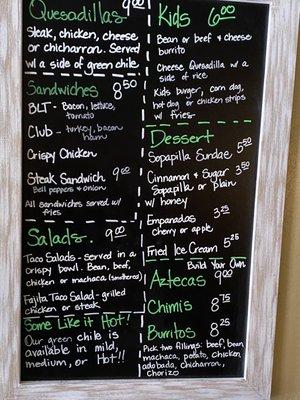 Quesadillas 9.00
Steak, chicken, cheese
or chicharron. Served
w/ a side of green chile
Sandwiches 8.50
BLT - Bacon, lettuce,
tomato
Club - turkey, bacon
ham
Crispy Chicken
Steak Sandwich 9.00
Bell peppers & onion
All Sandwiches served w/
fries
Salads. 9.00
Taco Salads - served in a
crispy bowl. Bean, beef,
chicken or machaca (smothered)
Fajita Taco Salad - grilled
chicken or steak.
Some Like it Hot!
Our green chile is
available in mild,
medium, or Hot!!
Kids 6.00
Bean or beef & cheese
burrito
Cheese Quesadilla w/ a
side of rice
Kids burger, corn dog,
hot dog or chicken strips
w/ fries
Dessert
Sopapilla Sundae 5.50
Cinnamon & Sugar 3.50
Sopapilla or plain
w/ honey
Empanadas 3.25
cherry or apple
Fried Ice Cream 5.25
Build Your Own
Aztecas 9.00
Chimis 8.75
Burritos 8.25
Pick two fillings: beef, bean
machaca, potato, chicken
adobada, chicharron,
chorizo